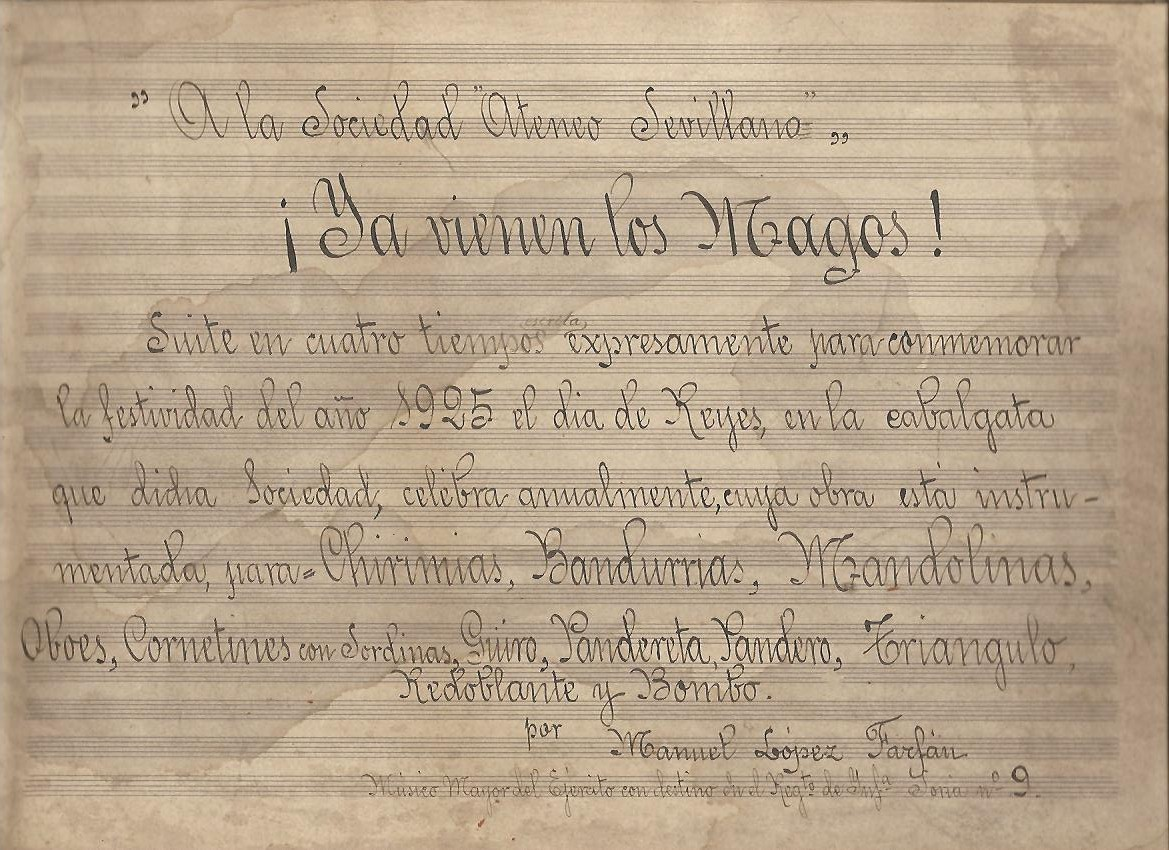 " A la Sociedad "Ateneo Sevillano" "
¡Ya vienen los Magos!
Suite en cuatro tiempos escrita expresamente para conmemorar
la festividad del año 1925 el dia de Reyes, en la cabalgata
que dicha Sociedad, celébra anualmente, cuya obra está instru-
mentada, para= Chirimias, Bandurrias, Mandolinas,
Oboes, Cornetines con Sordinas, Güiro, Pandereta, Pandero, Triangulo,
Redoblante y Bombo.
por
Manuel López Farfán
Músico Mayor del Ejército con destino en el Regto de Infª Soria nº 9.